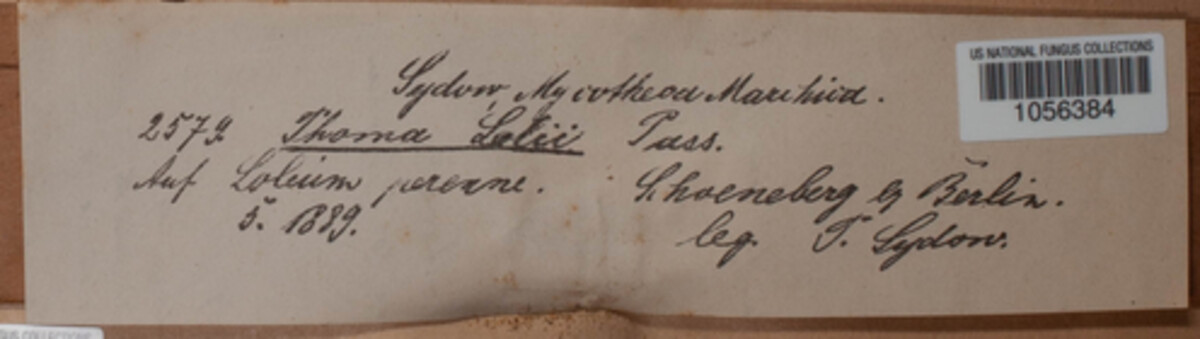 Sydow, Mycotheca Marchica.
US NATIONAL FUNGUS COLLECTIONS
1056384
2579. Phoma Lolii Pass.
Auf Lolium perenne. Schoeneberg bg Berlin.
5. 1889. leg. P. Sydow.